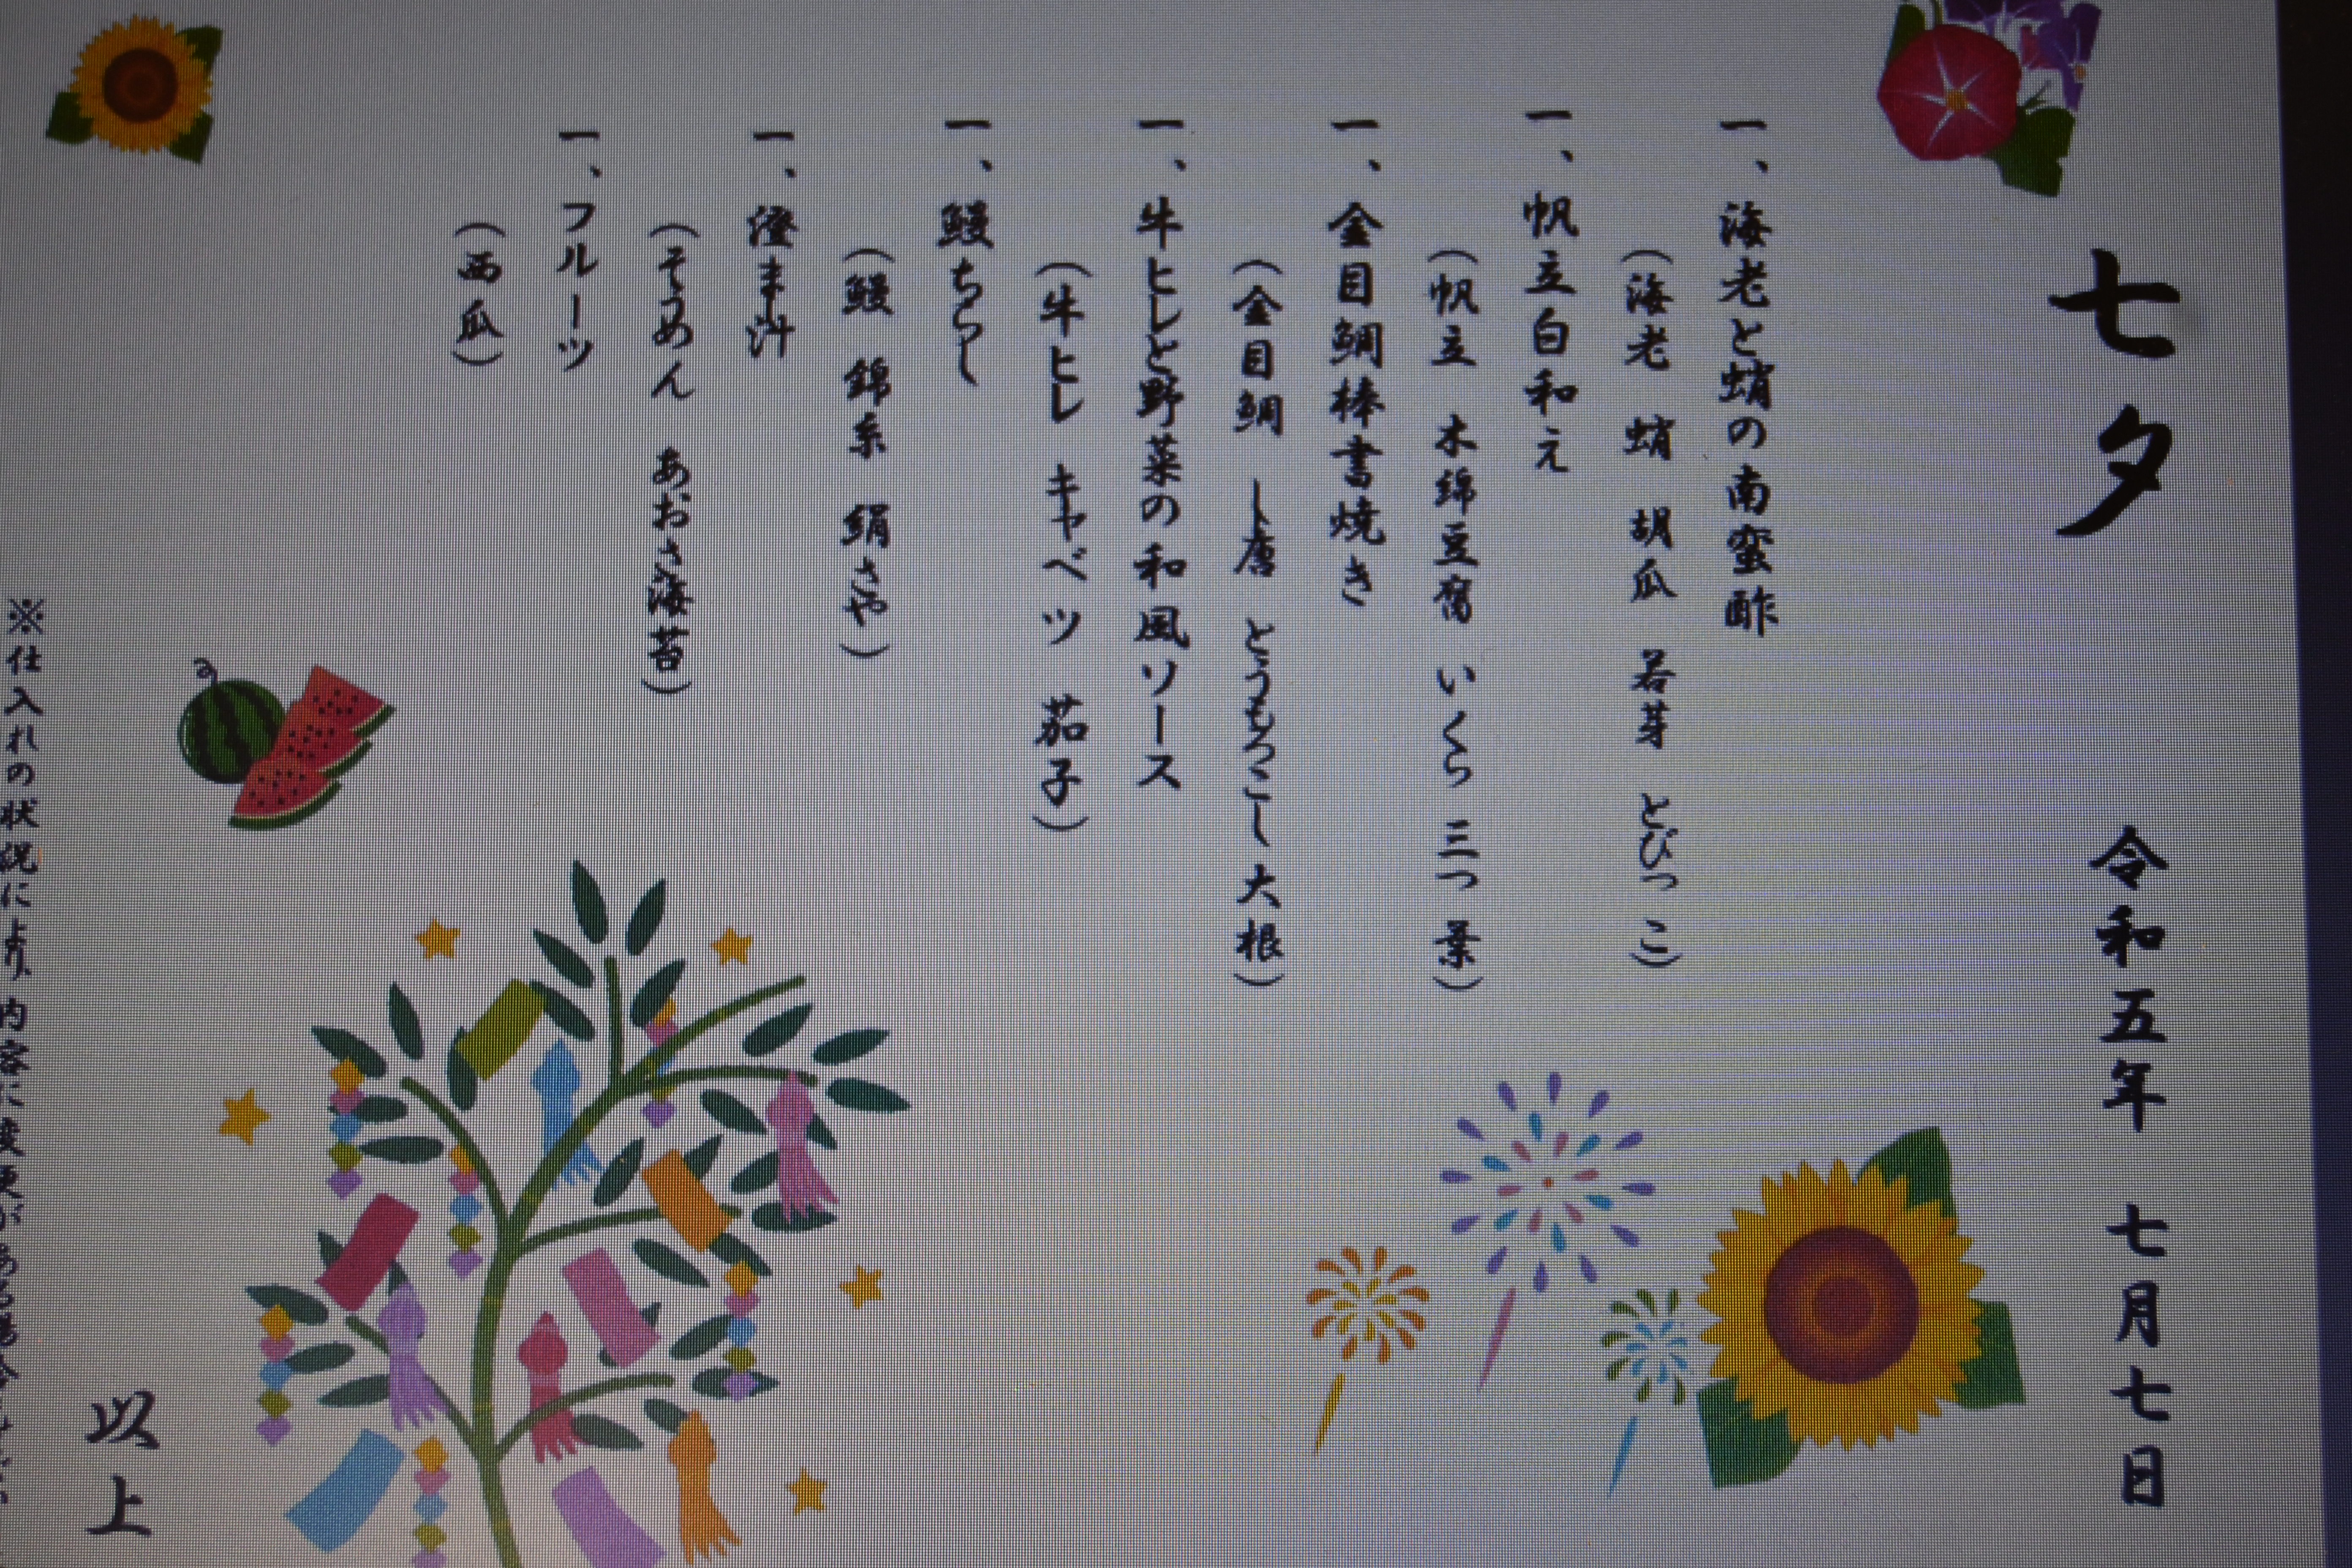 七夕 令和五年 七月七日
一、海老と蛸の南蛮酢
(海老 蛸 胡瓜 若芽 とびっこ)
一、帆立白和え
(帆立 木綿豆腐 いくら 三つ葉)
一、金目鯛棒書焼き
(金目鯛 し唐 とうもろこし 大根)
一、牛ヒレと野菜の和風ソース
(牛ヒレ キャベツ 茄子)
一、鰻ちらし
(鰻 錦糸 絹さや)
一、澄まし汁
(そうめん あおさ海苔)
一、フルーツ
(西瓜)
以上
※仕入れの状況により、内容に変更がある場合